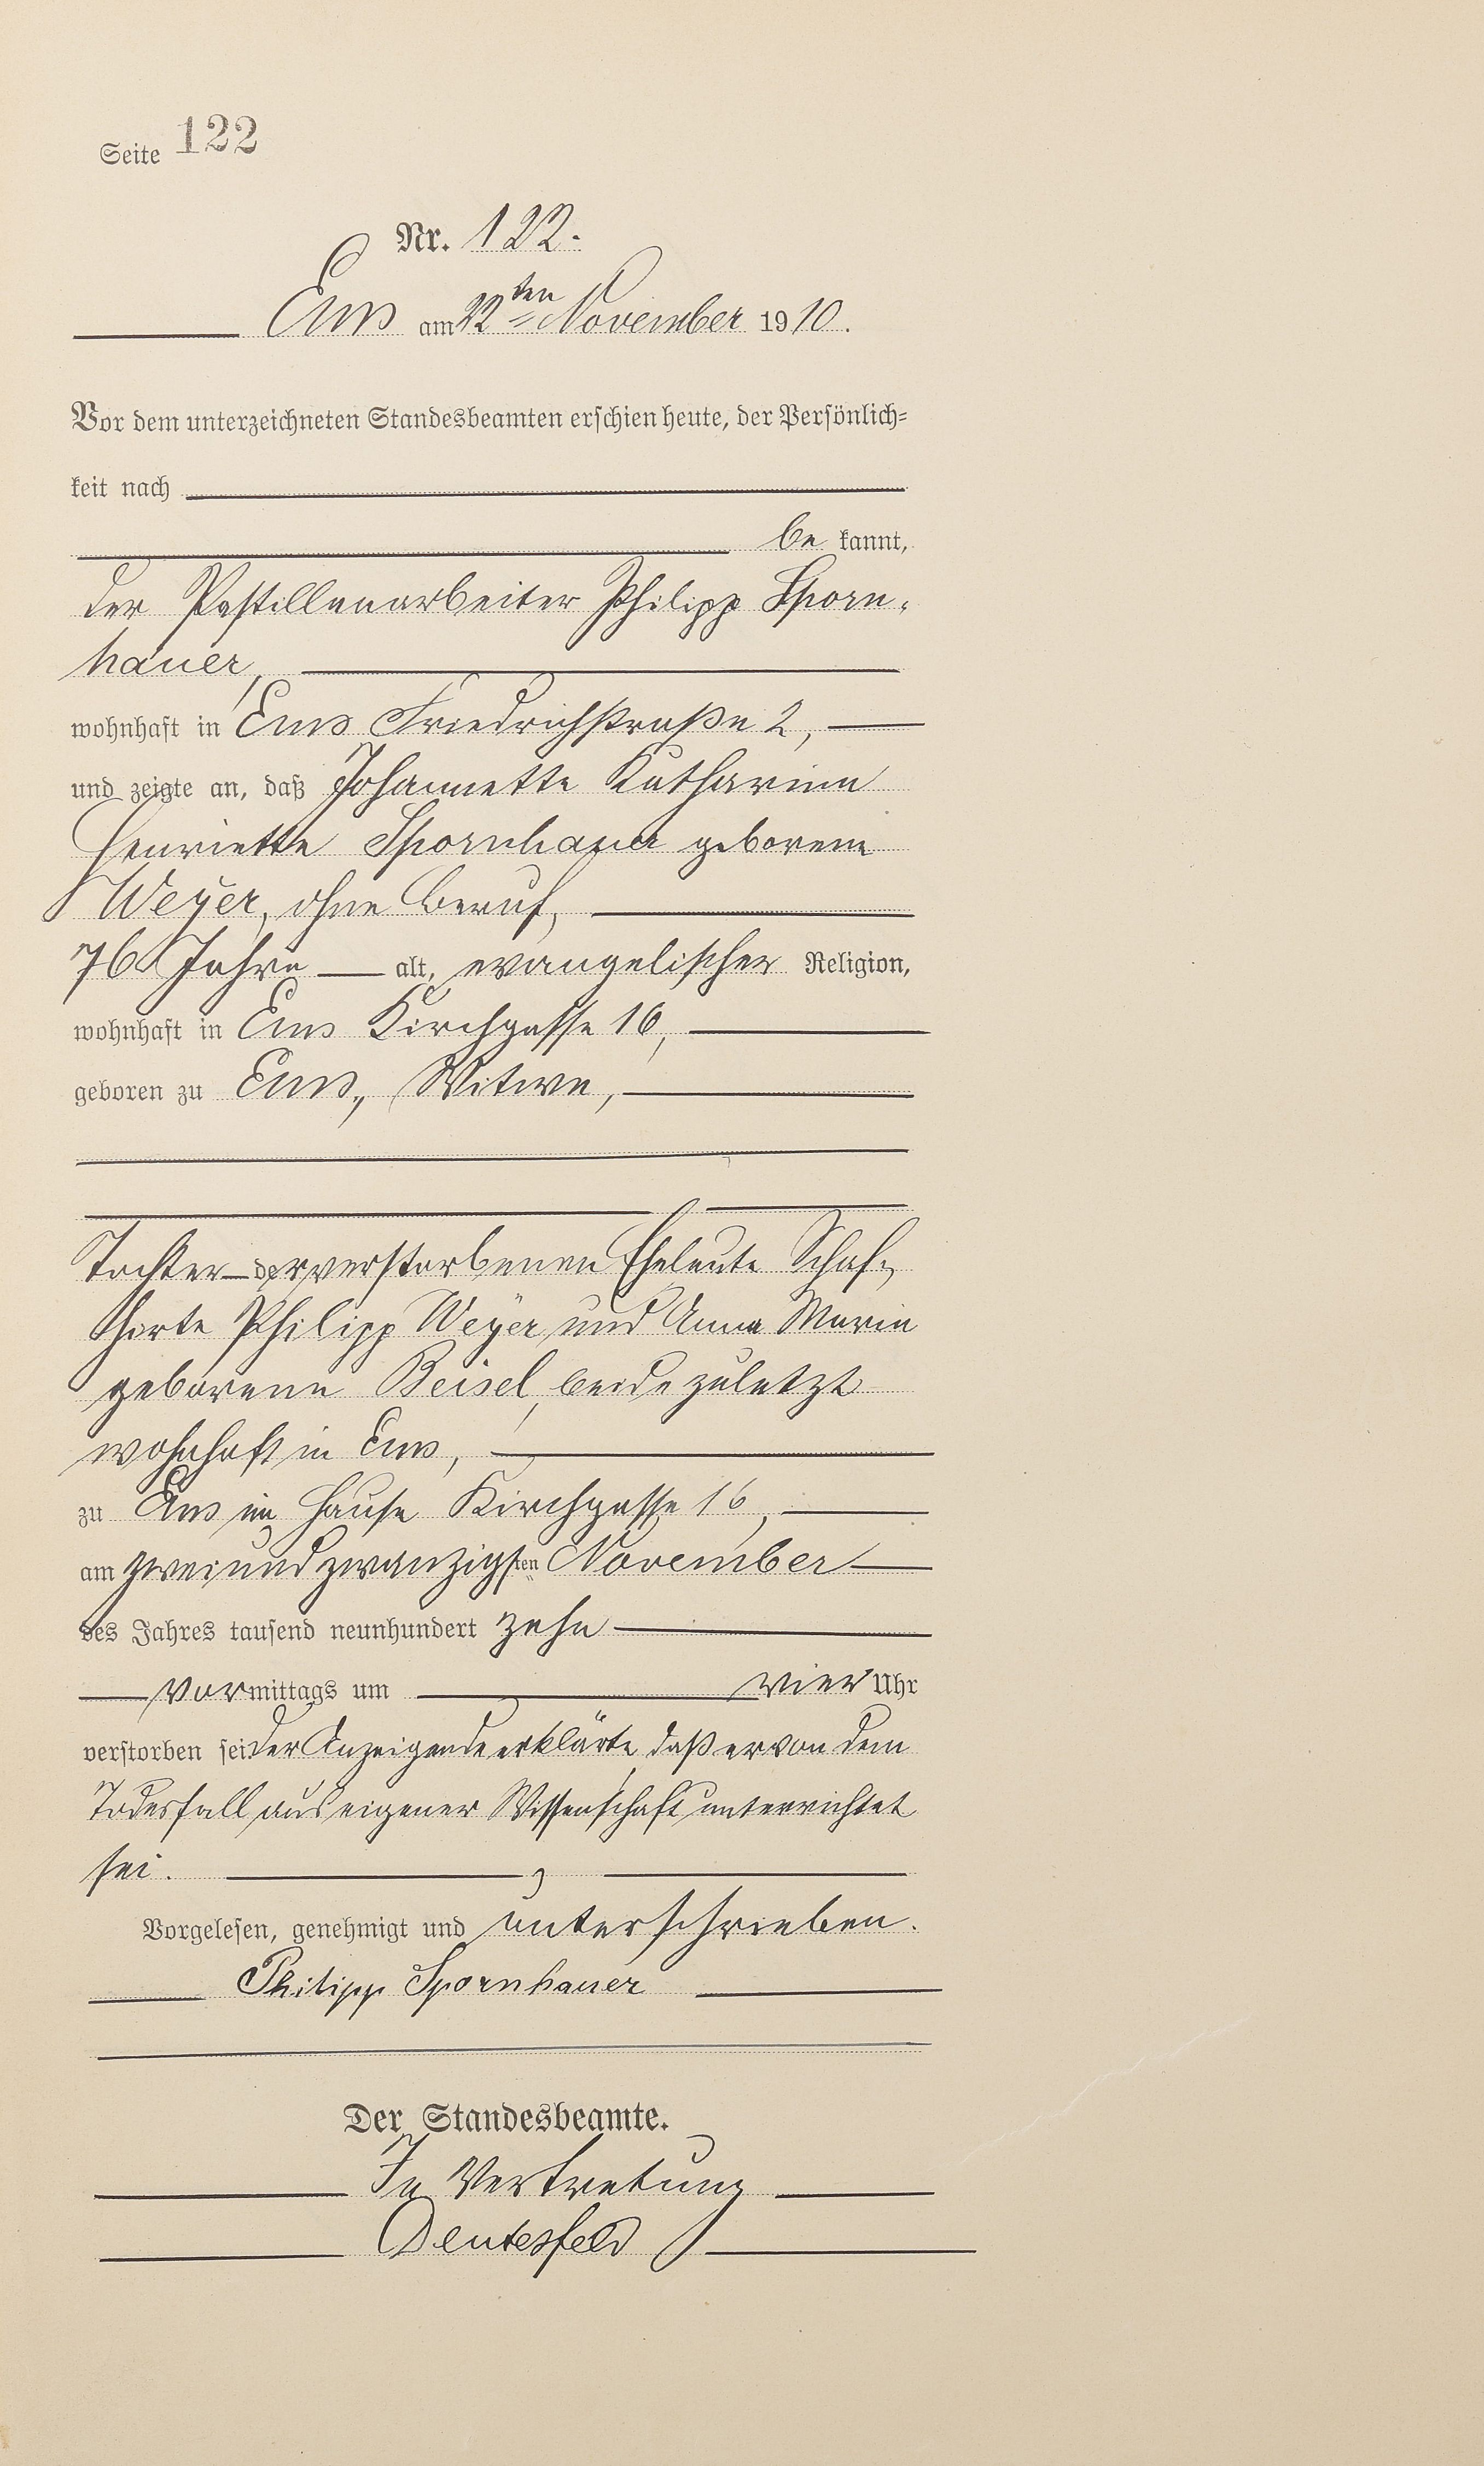 Seite 122
Nr. 122.
Ems am 22ten November 1910.
Vor dem unterzeichneten Standesbeamten erschien heute, der Persönlich-
keit nach
bekannt,
der Pastillenarbeiter Philipp Sporn-
hauer,
wohnhaft in Ems Friedrichstraße 2,
und zeigte an, daß Johannette Katharina
Henriette Spornhauer geborene
Weyer, ohne Beruf,
76 Jahre alt, evangelischer Religion,
wohnhaft in Ems Kirchgasse 16,
geboren zu Ems, Witwe,
Tochter der verstorbenen Eheleute
Philipp Weyer und Anna Maria
geborene Beisel, beide zuletzt
wohnhaft in Ems,
zu Ems im Hause Kirchgasse 16,
am zweiundzwanzigsten November
des Jahres tausend neunhundert zehn
vormittags um vier Uhr
verstorben sei. Der Anzeigende erklärte, daß er von dem
Todesfall aus eigener Wissenschaft unterrichtet
sei.
Vorgelesen, genehmigt und unterschrieben.
Philipp Spornhauer
Der Standesbeamte.
In Vertretung